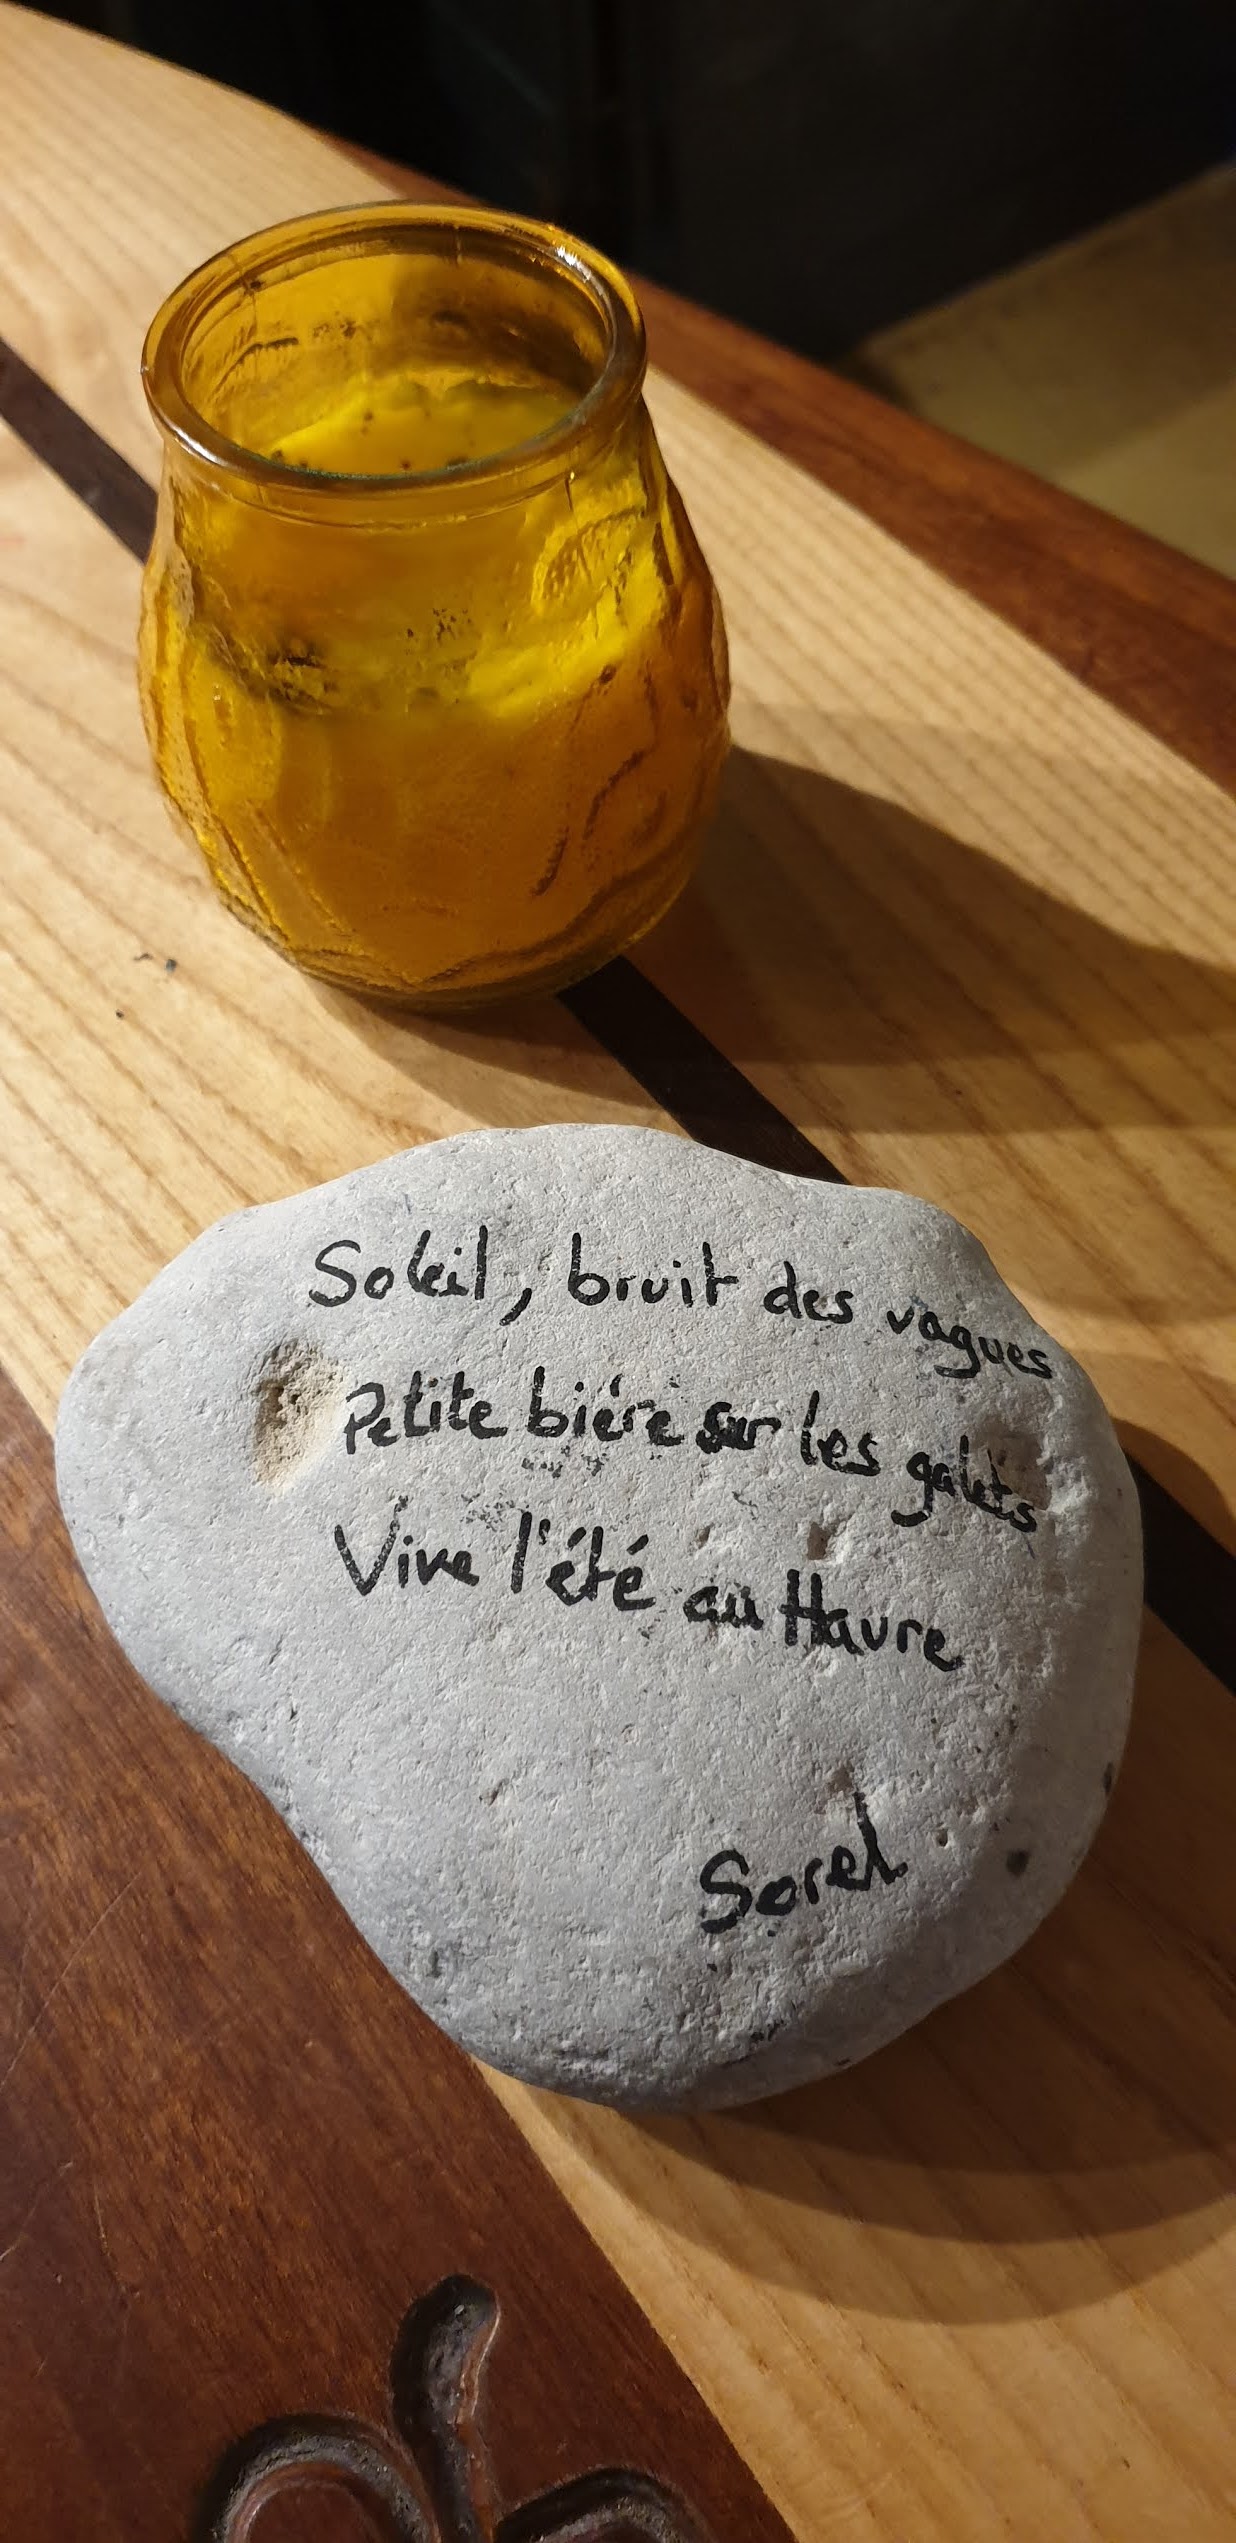 Soleil, bruit des vagues
Petite bière sur les galets
Vive l'été au Havre
Sorel